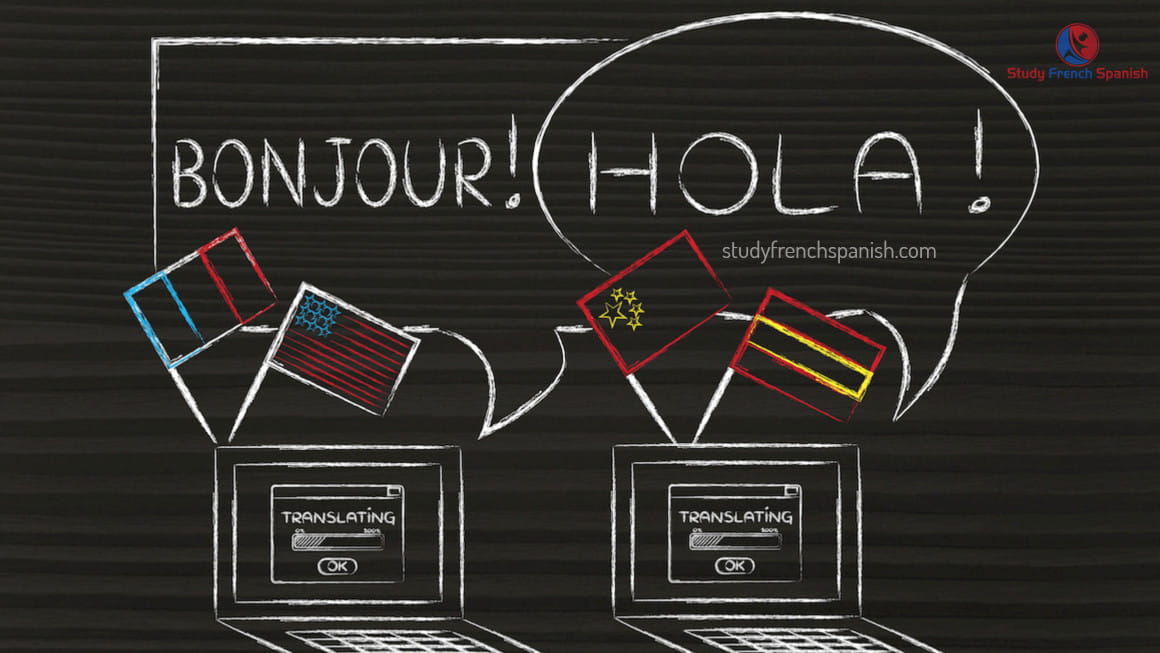 Study French Spanish
BONJOUR!
HOLA!
studyfrenchspanish.com
TRANSLATING
0% 100%
OK
TRANSLATING
0% 100%
OK